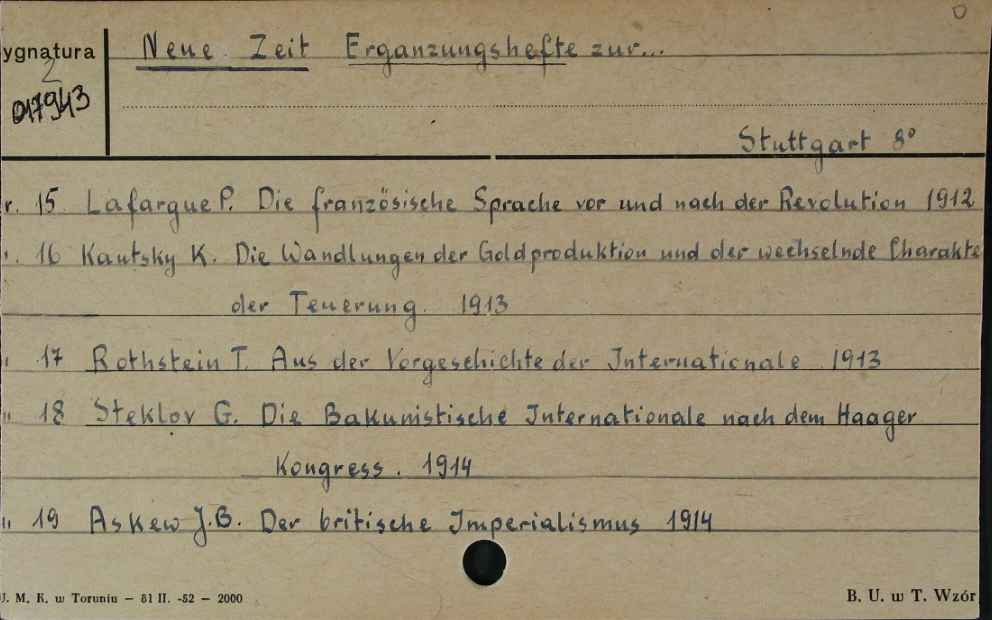 0
ygnatura Neue Zeit Erganzungshefte zur...
2
017943
Stuttgart 8°
r. 15 Lafargue P. Die französische Sprache vor und nach der Revolution 1912
". 16 Kautsky K. Die Wandlungen der Goldproduktion und der wechselnde Charakte
der Teuerung. 1913
" 17 Rothstein T. Aus der Vorgeschichte der Internationale 1913
" 18 Steklov G. Die Bakunistische Internationale nach dem Haager
Kongress. 1914
" 19 Askew J.B. Der britische Imperialismus 1914
U. M. K. w Toruniu — 81 II. -52 — 2000
B. U. w T. Wzór